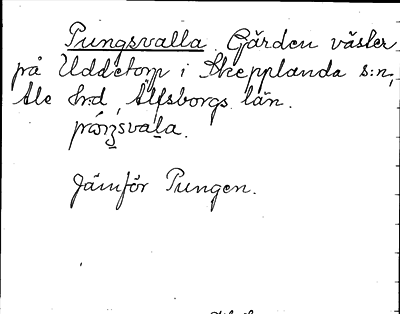 Pungsvalla. Gården väster
på Uddetorp i Skepplanda s:n,
Ale hrd, Älfsborgs län.
Jämför Pungen.